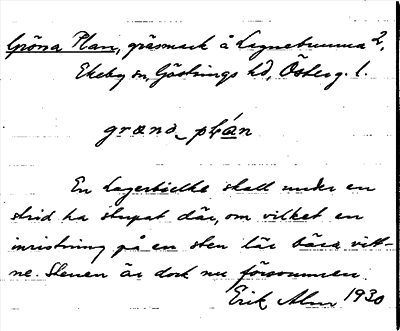 Gröna Plan, gräsmark å Lagnebrunna 2,
Ekeby sn, Göstrings hd, Österg. l.
grœnɑ_plɑ́n
En Lagerbielke skall under en
strid ha stupat där, om vilket en
inristning på en sten lär bära vitt-
ne. Stenen är dock nu försvunnen.
Erik Alm 1930